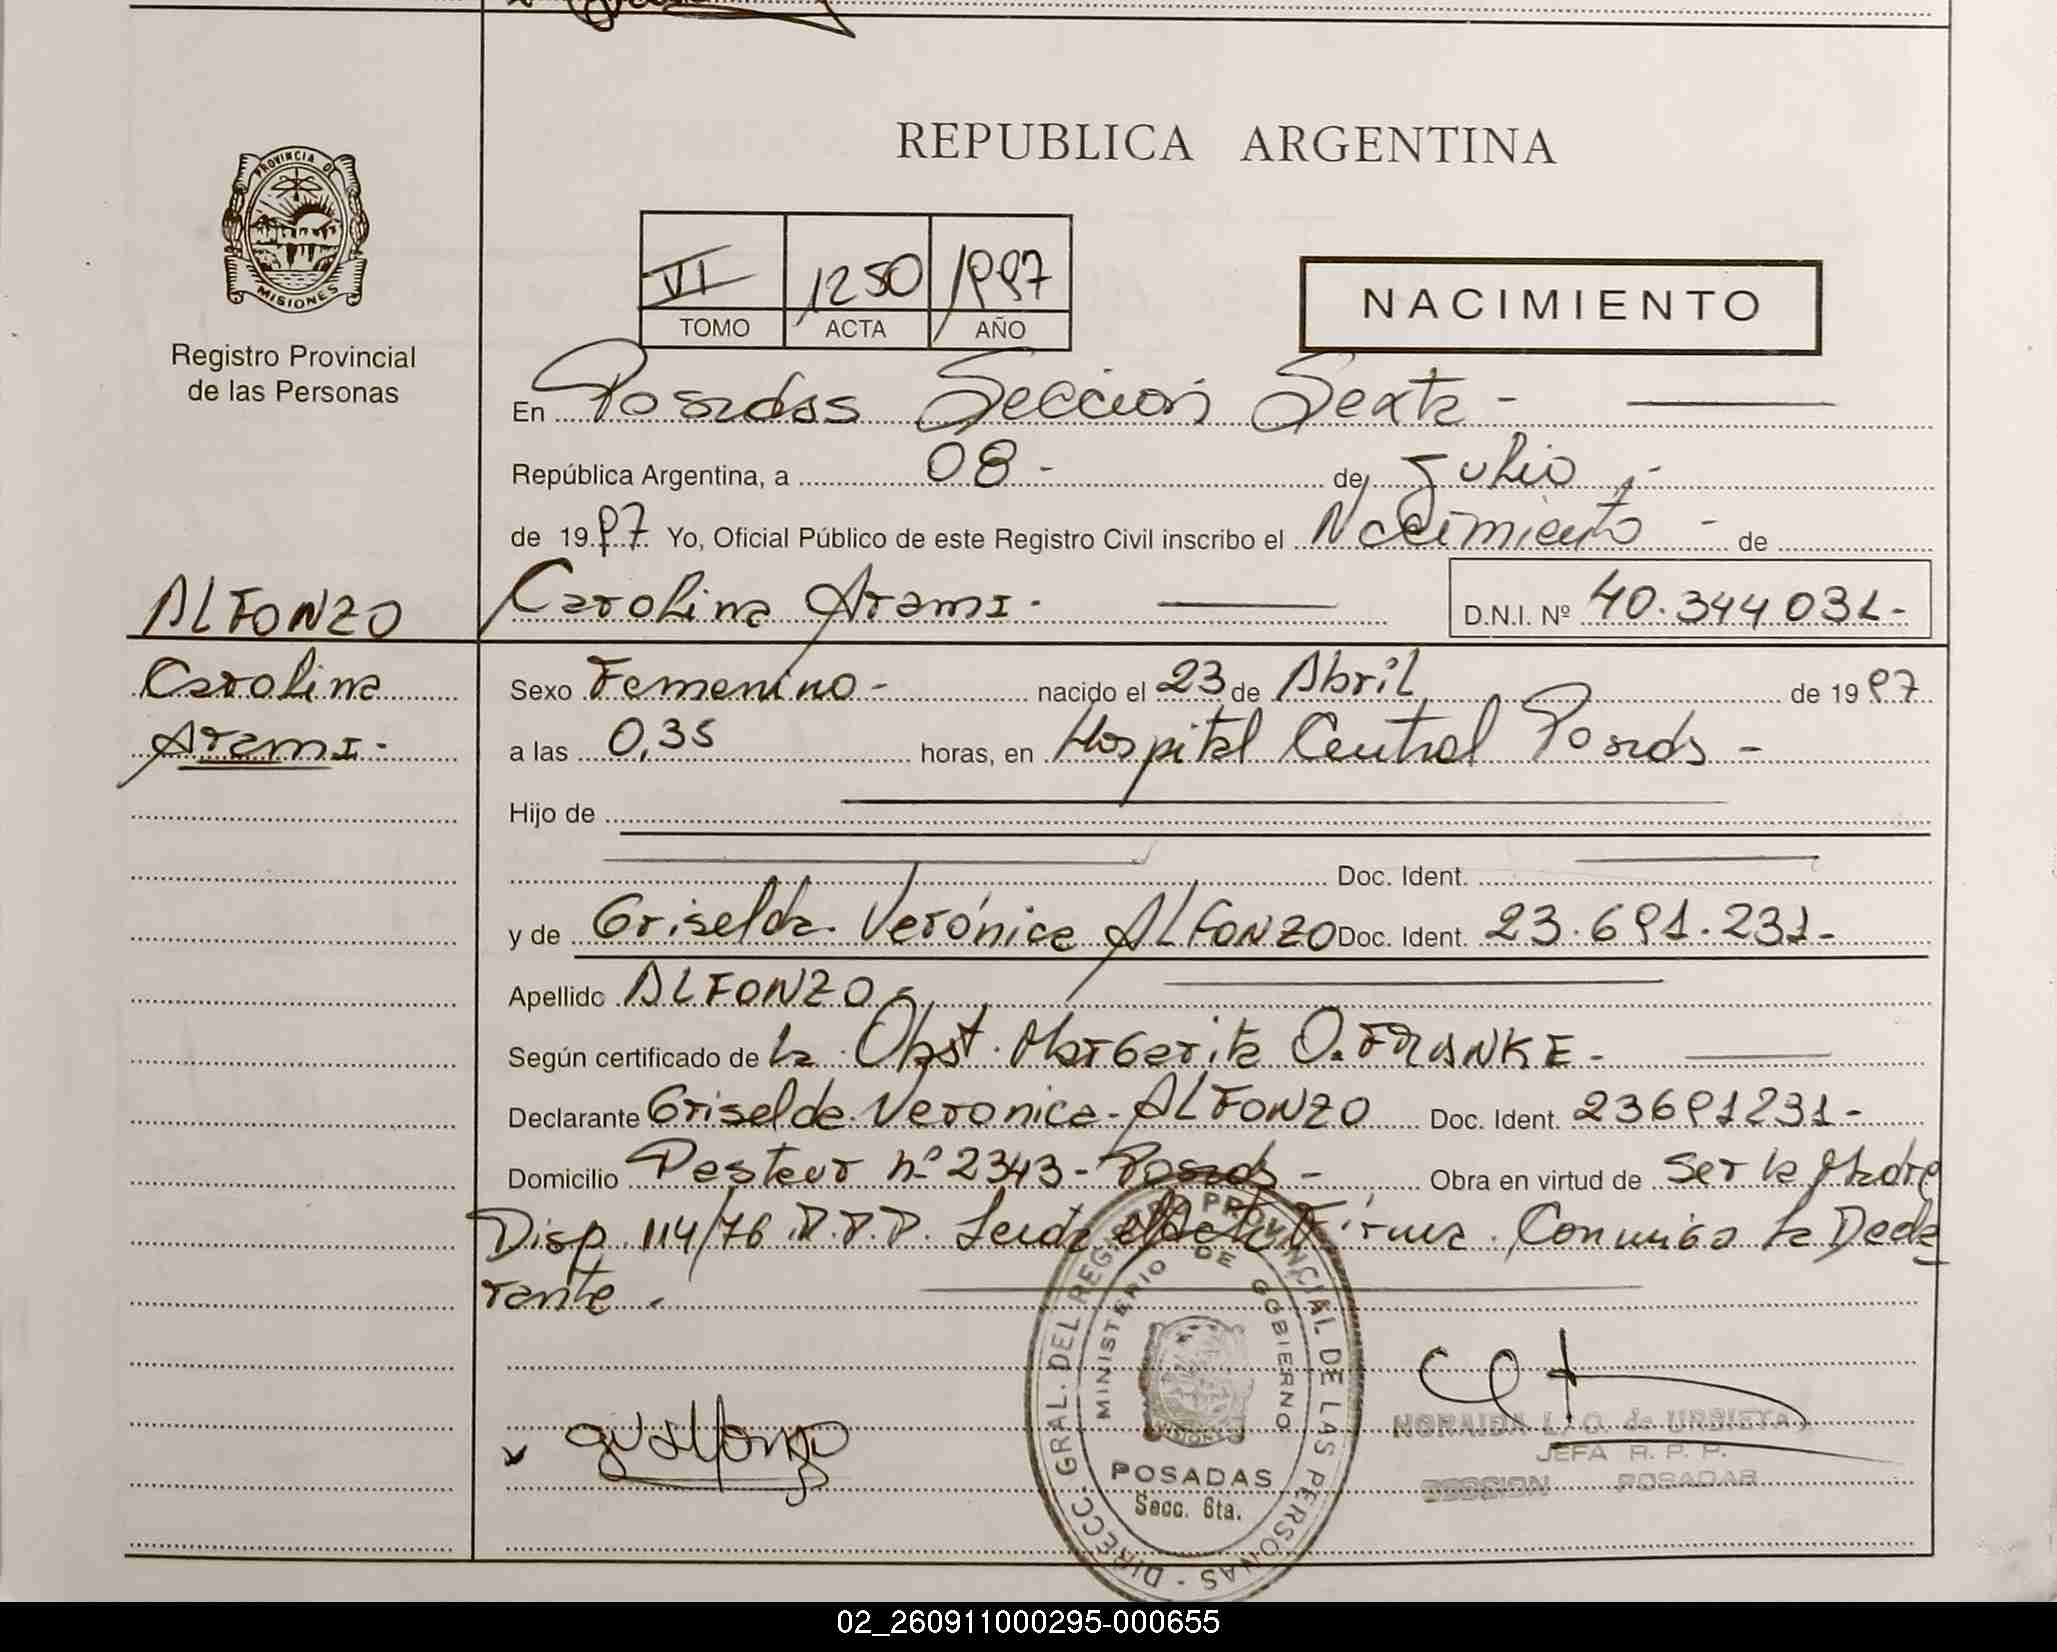 REPUBLICA ARGENTINA
PROVINCIA DE MISIONES
Registro Provincial
de las Personas
VI 1250 1997
TOMO ACTA AÑO
NACIMIENTO
En Posadas Sección Sexta -
República Argentina, a 08 - de Julio -
de 1997 Yo, Oficial Público de este Registro Civil inscribo el Nacimiento - de
Carolina Arami - D.N.I. Nº 40.344031-
ALFONZO
Carolina
Arami -
Sexo Femenino - nacido el 23 de Abril de 1997
a las 0,35 horas, en Hospital Central Posads -
Hijo de
Doc. Ident.
y de Griselda Verónica ALFONZO Doc. Ident. 23.691.231-
Apellido ALFONZO
Según certificado de la Obst. Margarita O. FRANKE -
Declarante Griselda Veronica ALFONZO Doc. Ident. 23691231-
Domicilio Pasteur nº 2343 - Posads - Obra en virtud de ser la Madre
Disp. 114/76 R.P.P. Leida el Acta Firma Conmigo la Decla
rante.
DIRECC. GRAL. DEL REGISTRO PROVINCIAL DE LAS PERSONAS -
MINISTERIO DE GOBIERNO
POSADAS
Secc. 6ta.
NORAIDA L. O. de URBIETA
JEFA R. P. P.
SECCION POSADAS
02_260911000295-000655